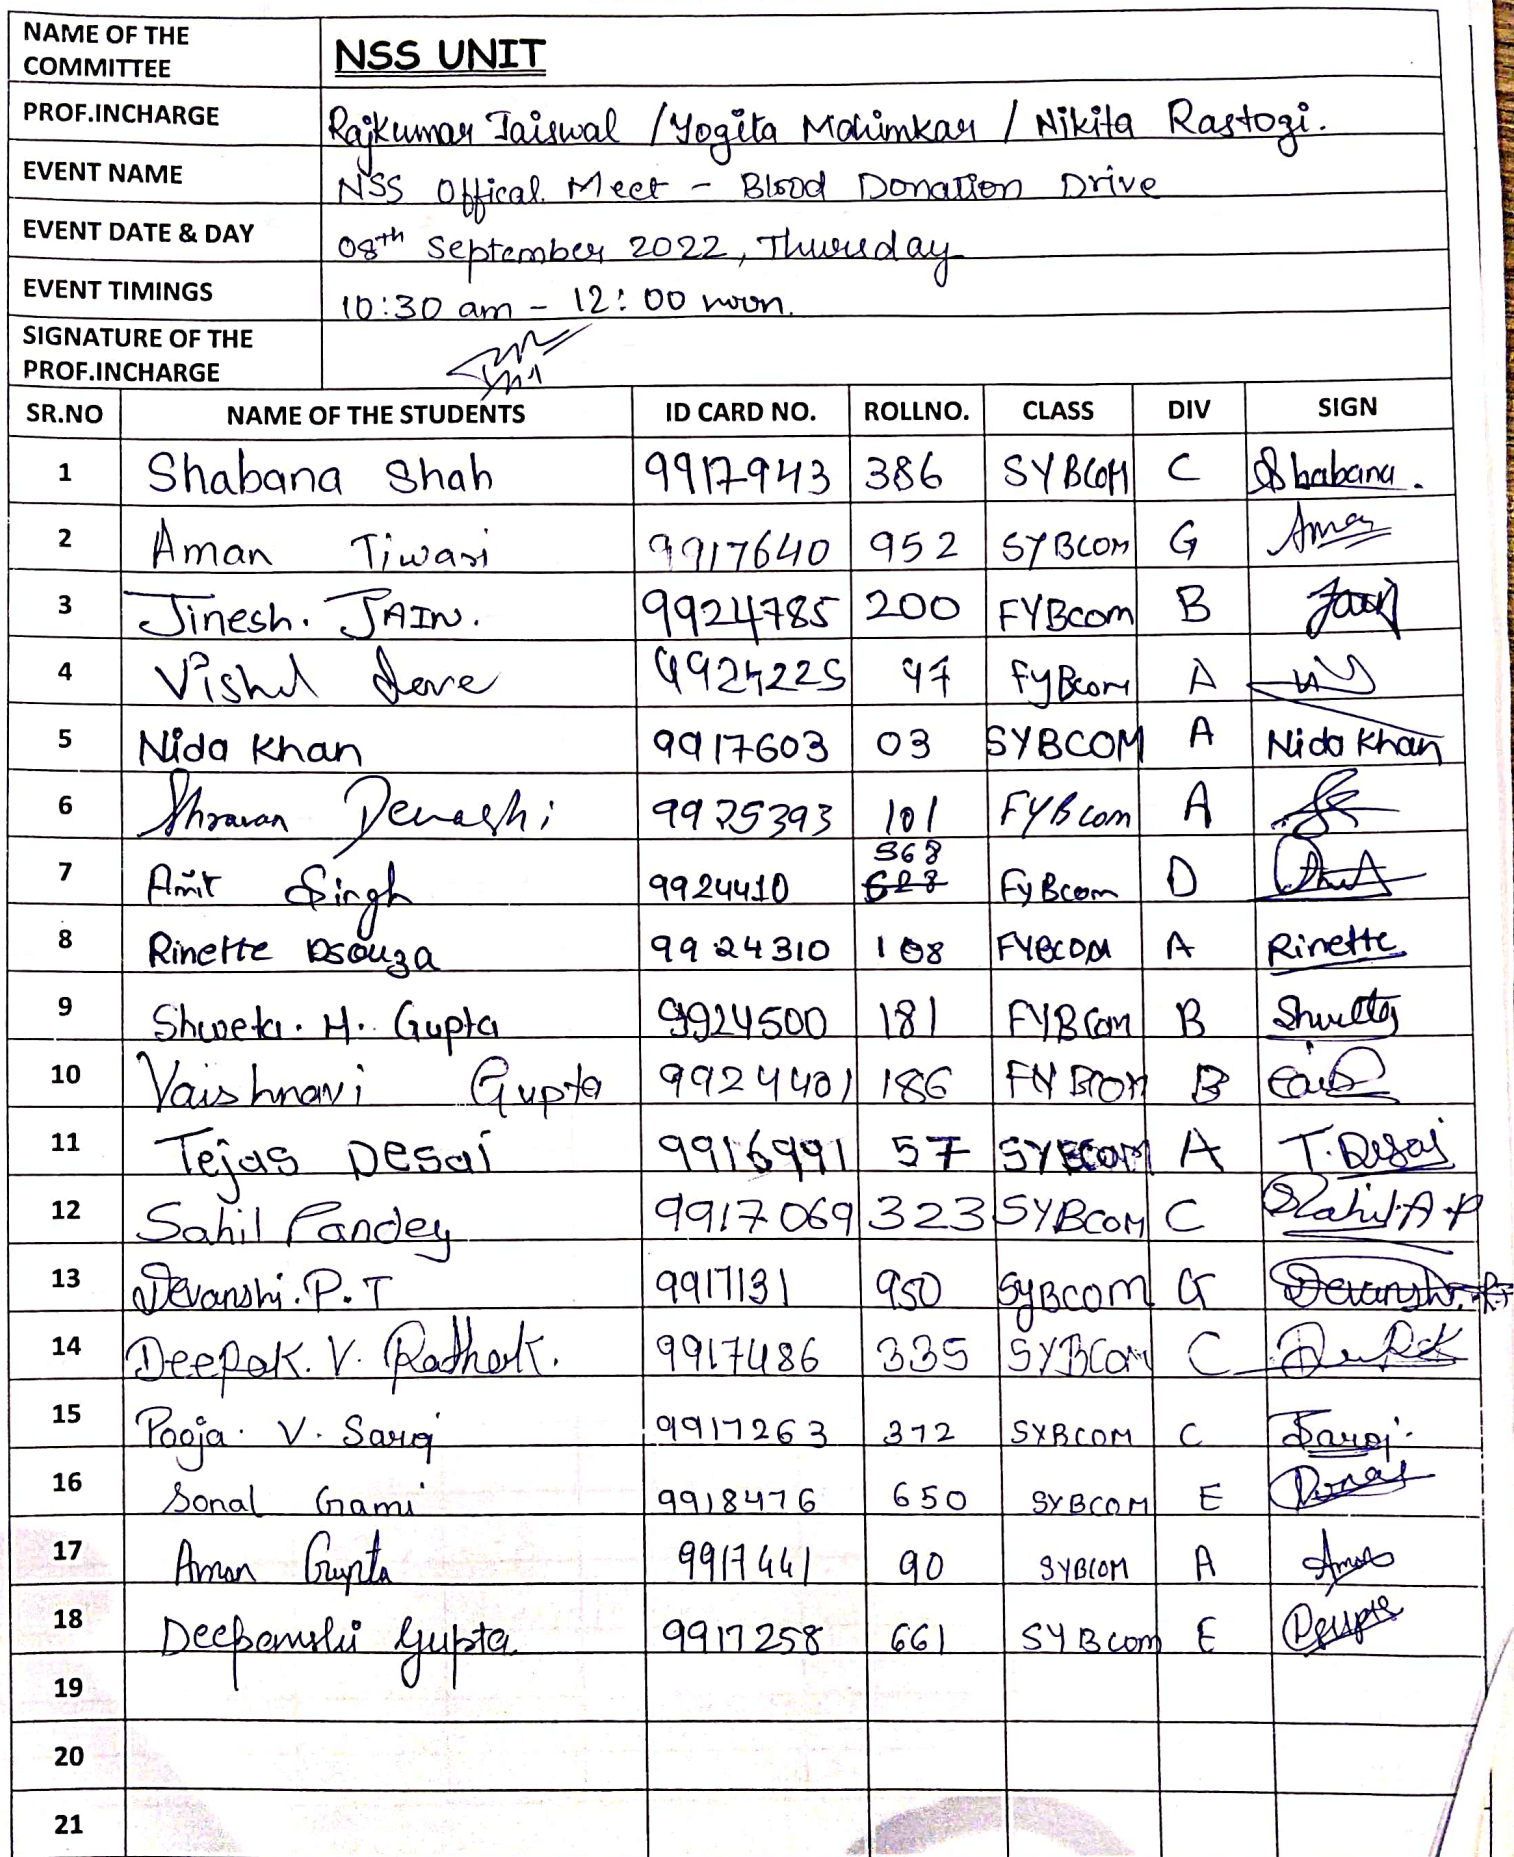 NAME OF THE COMMITTEE NSS UNIT
PROF.INCHARGE Rajkumar Jaiswal / Yogita Mahimkar / Nikita Rastogi.
EVENT NAME NSS Offical Meet - Blood Donation Drive
EVENT DATE & DAY 08th September 2022, Thursday
EVENT TIMINGS 10:30 am - 12:00 noon.
SIGNATURE OF THE PROF.INCHARGE
SR.NO NAME OF THE STUDENTS ID CARD NO. ROLLNO. CLASS DIV SIGN
1 Shabana Shah 9917943 386 SYBCOM C Shabana.
2 Aman Tiwari 9917640 952 SYBCOM G Aman
3 Jinesh. JAIN. 9924785 200 FYBcom B Jain
4 Vishal Dave 9924225 97 FyBcom A
5 Nida Khan 9917603 03 SYBCOM A Nida Khan
6 Shravan Devashi 9925393 101 FYBcom A
7 Amit Singh 9924410 568 628 FyBcom D
8 Rinette Dsouza 9924310 108 FYBCOM A Rinette
9 Shweta. H. Gupta 9924500 181 FYBCom B Shweta
10 Vaishnavi Gupta 9924401 186 FYBCOM B
11 Tejas Desai 9916991 57 SYBCOM A T.Desai
12 Sahil Pandey 9917069 323 SYBCOM C Sahil.A.P
13 Devanshi.P.T 9917131 950 SYBCOM G Devanshi.P.T
14 Deepak. V. Rathod. 9917486 335 SYBCom C Deepak
15 Pooja. V. Saroj 9917263 372 SYBCOM C Saroj.
16 Sonal Gami 9918476 650 SYBCOM E Sonal
17 Aman Gupta 9917441 90 SYBCOM A Aman
18 Deepanshi Gupta 9917258 661 SYBcom E
19
20
21